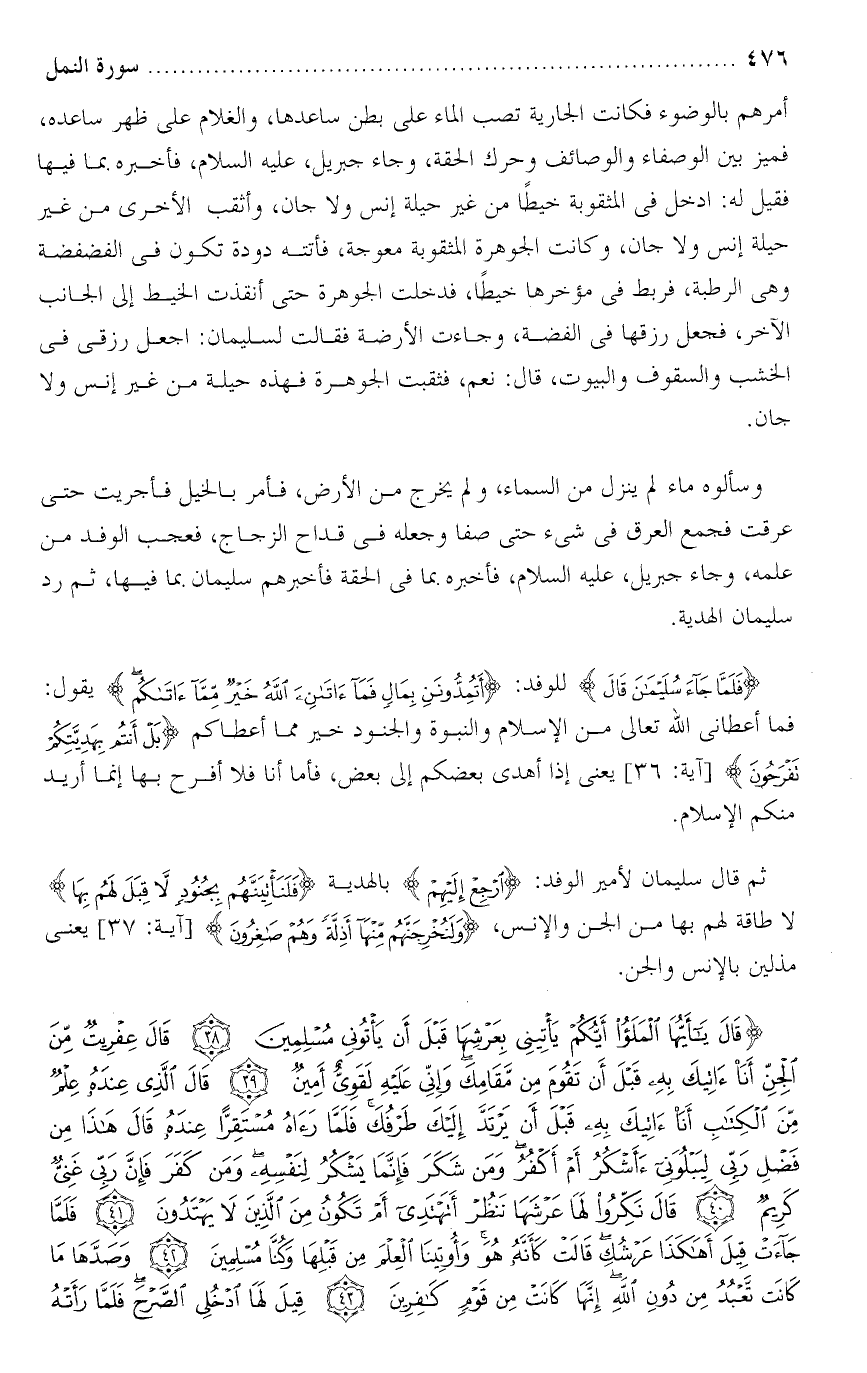 ٤٧٦ ........................................................................ سورة النمل
أمرهم بالوضوء فكانت الجارية تصب الماء على بطن ساعدها، والغلام على ظهر ساعده،
فميز بين الوصفاء والوصائف وحرك الحقة، وجاء جبريل، عليه السلام، فأخبره بما فيها
فقيل له: ادخل فى المثقوبة خيطًا من غير حيلة إنس ولا جان، وأثقب الأخرى من غير
حيلة إنس ولا جان، وكانت الجوهرة المثقوبة معوجة، فأتته دودة تكون فى الفضفضة
وهى الرطبة، فربط فى مؤخرها خيطًا، فدخلت الجوهرة حتى أنقذت الخيط إلى الجانب
الآخر، فجعل رزقها فى الفضة، وجاءت الأرضة فقالت لسليمان: اجعل رزقى فى
الخشب والسقوف والبيوت، قال: نعم، فثقبت الجوهرة فهذه حيلة من غير إنس ولا
جان.
وسألوه ماء لم ينزل من السماء، ولم يخرج من الأرض، فأمر بالخيل فأجريت حتى
عرقت فجمع العرق فى شىء حتى صفا وجعله فى قداح الزجاج، فعجب الوفد من
علمه، وجاء جبريل، عليه السلام، فأخبره بما فى الحقة فأخبرهم سليمان بما فيها، ثم رد
سليمان الهدية.
﴿فَلَمَّا جَآءَ سُلَيْمَٰنَ قَالَ﴾ للوفد: ﴿أَتُمِدُّونَنِ بِمَالٍ فَمَآ ءَاتَىٰنِۦَ ٱللَّهُ خَيْرٌ مِّمَّآ ءَاتَىٰكُمۖ﴾ يقول:
فما أعطانى الله تعالى من الإسلام والنبوة والجنود خير مما أعطاكم ﴿بَلْ أَنتُم بِهَدِيَّتِكُمْ
تَفْرَحُونَ﴾ [آية: ٣٦] يعنى إذا أهدى بعضكم إلى بعض، فأما أنا فلا أفرح بها إنما أريد
منكم الإسلام.
ثم قال سليمان لأمير الوفد: ﴿ٱرْجِعْ إِلَيْهِمْ﴾ بالهدية ﴿فَلَنَأْتِيَنَّهُم بِجُنُودٍ لَّا قِبَلَ لَهُم بِهَا﴾
لا طاقة لهم بها من الجن والإنس، ﴿وَلَنُخْرِجَنَّهُم مِّنْهَآ أَذِلَّةً وَهُمْ صَٰغِرُونَ﴾ [آية: ٣٧] يعنى
مذلين بالإنس والجن.
﴿قَالَ يَٰٓأَيُّهَا ٱلْمَلَؤُاْ أَيُّكُمْ يَأْتِينِى بِعَرْشِهَا قَبْلَ أَن يَأْتُونِى مُسْلِمِينَ ٣٨ قَالَ عِفْرِيتٌ مِّنَ
ٱلْجِنِّ أَنَا۠ ءَاتِيكَ بِهِۦ قَبْلَ أَن تَقُومَ مِن مَّقَامِكَۖ وَإِنِّى عَلَيْهِ لَقَوِىٌّ أَمِينٌ ٣٩ قَالَ ٱلَّذِى عِندَهُۥ عِلْمٌ
مِّنَ ٱلْكِتَٰبِ أَنَا۠ ءَاتِيكَ بِهِۦ قَبْلَ أَن يَرْتَدَّ إِلَيْكَ طَرْفُكَۚ فَلَمَّا رَءَاهُ مُسْتَقِرًّا عِندَهُۥ قَالَ هَٰذَا مِن
فَضْلِ رَبِّى لِيَبْلُوَنِىٓ ءَأَشْكُرُ أَمْ أَكْفُرُۖ وَمَن شَكَرَ فَإِنَّمَا يَشْكُرُ لِنَفْسِهِۦۖ وَمَن كَفَرَ فَإِنَّ رَبِّى غَنِىٌّ
كَرِيمٌ ٤٠ قَالَ نَكِّرُواْ لَهَا عَرْشَهَا نَنظُرْ أَتَهْتَدِىٓ أَمْ تَكُونُ مِنَ ٱلَّذِينَ لَا يَهْتَدُونَ ٤١ فَلَمَّا
جَآءَتْ قِيلَ أَهَٰكَذَا عَرْشُكِۖ قَالَتْ كَأَنَّهُۥ هُوَۚ وَأُوتِينَا ٱلْعِلْمَ مِن قَبْلِهَا وَكُنَّا مُسْلِمِينَ ٤٢ وَصَدَّهَا مَا
كَانَت تَّعْبُدُ مِن دُونِ ٱللَّهِۖ إِنَّهَا كَانَتْ مِن قَوْمٍ كَٰفِرِينَ ٤٣ قِيلَ لَهَا ٱدْخُلِى ٱلصَّرْحَۖ فَلَمَّا رَأَتْهُ